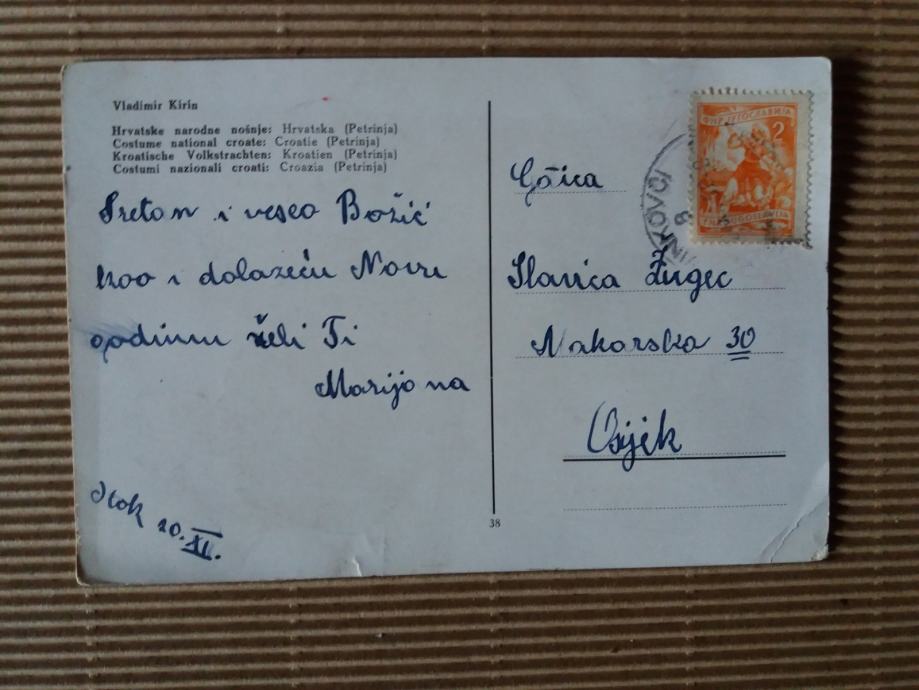 Vladimir Kirin
Hrvatske narodne nošnje: Hrvatska (Petrinja)
Costume national croate: Croatie (Petrinja)
Kroatische Volkstrachten: Kroatien (Petrinja)
Costumi nazionali croati: Croazia (Petrinja)
Sretan i veseo Božić
kao i dolazeću Novu
godinu želi Ti
Marijana
Otok 10. XII.
38
2
FNR JUGOSLAVIJA
VINKOVCI
Gđica
Slavica Žugec
Nakarska 30
Osijek